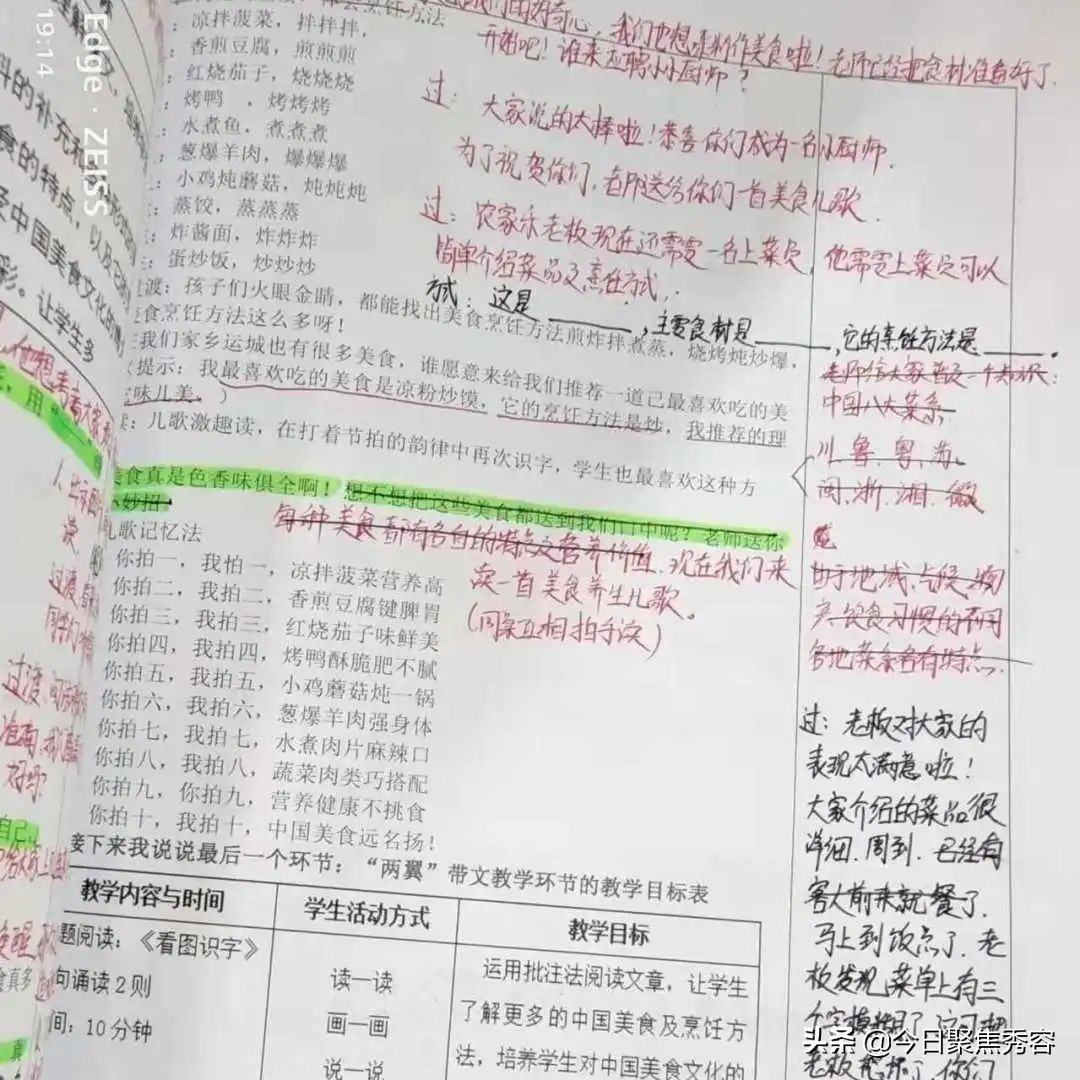 19:14
Edge · ZEISS
烹饪方法
开始吧！谁来应聘小小厨师？
凉拌菠菜，拌拌拌，
香煎豆腐，煎煎煎
红烧茄子，烧烧烧
烤鸭，烤烤烤
水煮鱼，煮煮煮
葱爆羊肉，爆爆爆
小鸡炖蘑菇，炖炖炖
蒸饺，蒸蒸蒸
炸酱面，炸炸炸
蛋炒饭，炒炒炒
过：大家说的太棒啦！恭喜你们成为一名小厨师.
为了祝贺你们，老师送给你们一首美食儿歌.
过：农家乐老板现在还需要一名上菜员，他需要上菜员可以
简单介绍菜品及烹饪方式.
方式：这是____，主要食材是____，它的烹饪方法是____。
渡：孩子们火眼金睛，都能找出美食烹饪方法煎炸拌煮蒸，烧烤炖炒爆，
食烹饪方法这么多呀！
我们家乡运城也有很多美食，谁愿意来给我们推荐一道已最喜欢吃的美
提示：我最喜欢吃的美食是凉粉炒馍，它的烹饪方法是炒，我推荐的理
味儿美。）
读：儿歌激趣读，在打着节拍的韵律中再次识字，学生也最喜欢这种方
美食真是色香味俱全啊！想不想把这些美食都送到我们口中呢？老师送你
妙招
每种美食都有各自的特点及营养价值，现在我们来
读一首美食养生儿歌。
(同桌互相拍手读)
儿歌记忆法
你拍一，我怕一，凉拌菠菜营养高
你拍二，我拍二，香煎豆腐键脾胃
你拍三，我拍三，红烧茄子味鲜美
你拍四，我拍四，烤鸭酥脆肥不腻
你拍五，我拍五，小鸡蘑菇炖一锅
你拍六，我拍六，葱爆羊肉强身体
你拍七，我拍七，水煮肉片麻辣口
你拍八，我拍八，蔬菜肉类巧搭配
你拍九，你拍九，营养健康不挑食
你拍十，我拍十，中国美食远名扬！
接下来我说说最后一个环节：“两翼”带文教学环节的教学目标表
教学内容与时间 学生活动方式 教学目标
题阅读：《看图识字》
句诵读2则
间：10分钟
读一读
画一画
说一说
运用批注法阅读文章，让学生
了解更多的中国美食及烹饪方
法，培养学生对中国美食文化的
中国八大菜系
川、鲁、粤、苏、
闽、浙、湘、徽
由于地域、气候、物
产、饮食习惯的不同
各地菜系各有特点.
过：老板对大家的
表现太满意啦！
大家介绍的菜品很
详细、周到.已经有
客人前来就餐了.
马上到饭点了.老
板发现菜单上有三
头条 @今日聚焦秀容